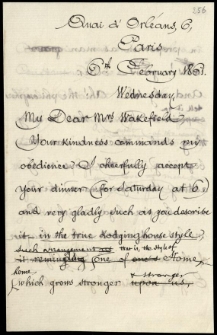 356
Quai d'Orléans, 6,
Paris
6th February 18
Wednesday
My Dear Mrs Wakefield,
Your kindness commands my
obedience. I cheerfully accept
your dinner for Saturday at 6
and very gladly such as you describe
it, in the true lodging house style,
such arrangement
it reminding one of Home,
home
& stronger
which grows stronger upon us,